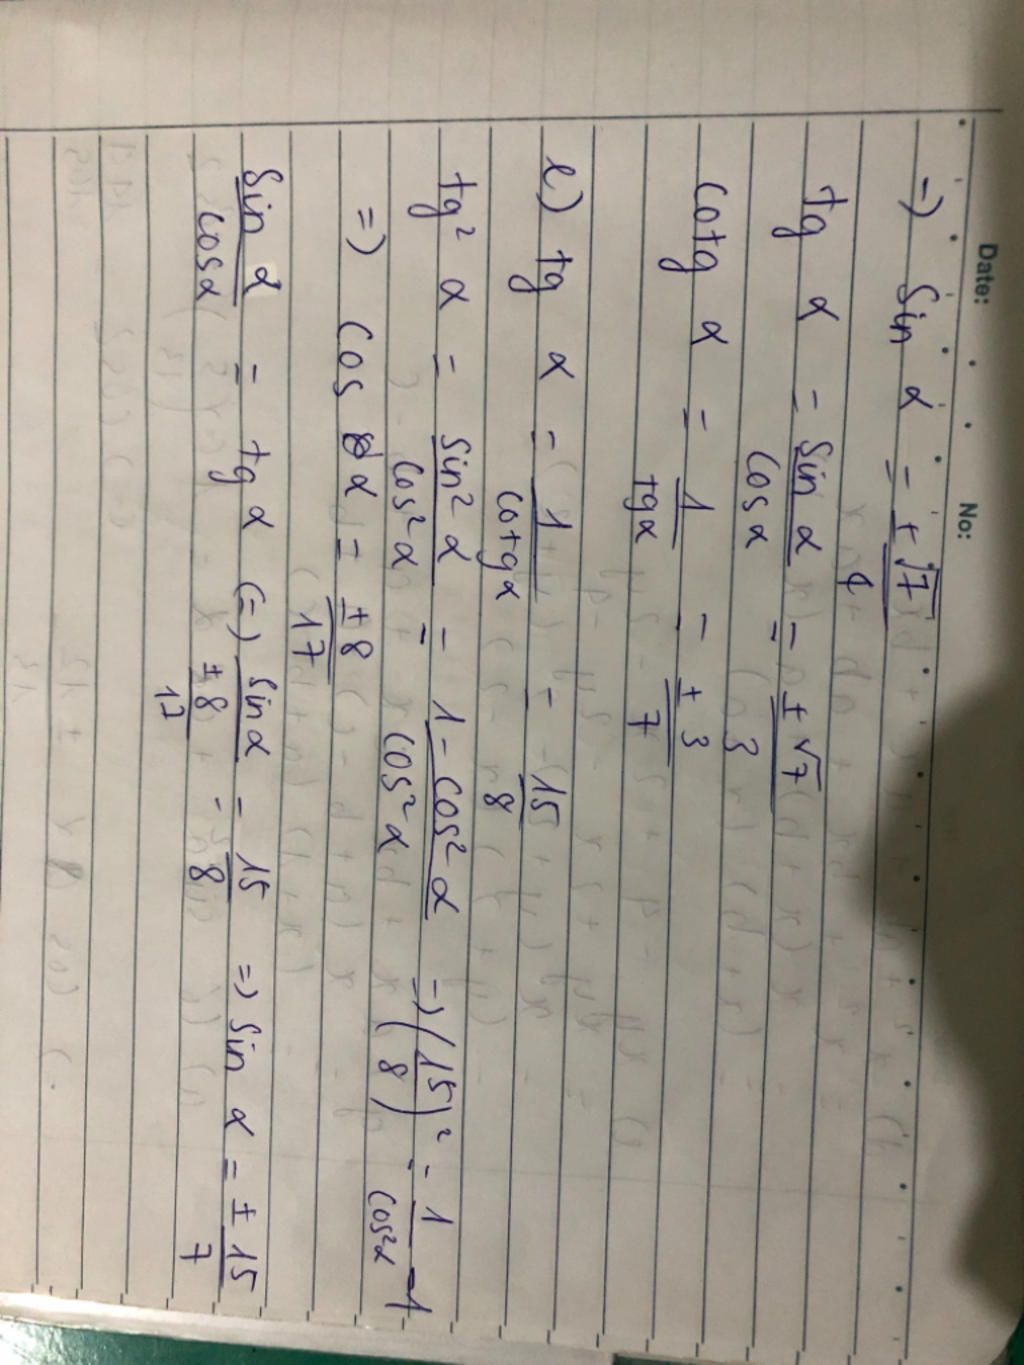 Date: No:
=) Sin α = ±√7/4
tg α = Sin α/Cos α = ±√7/3
Cotg α = 1/tgα = ±3/7
e) tg α = 1/cotgα = 15/8
tg² α = Sin² α/Cos² α = 1 - Cos² α/Cos² α =) (15/8)² = 1/Cos²α - 1
=) Cos α = ±8/17
Sin α/Cosα = tg α (=) Sin α/±8/17 = 15/8 =) Sin α = ±15/7